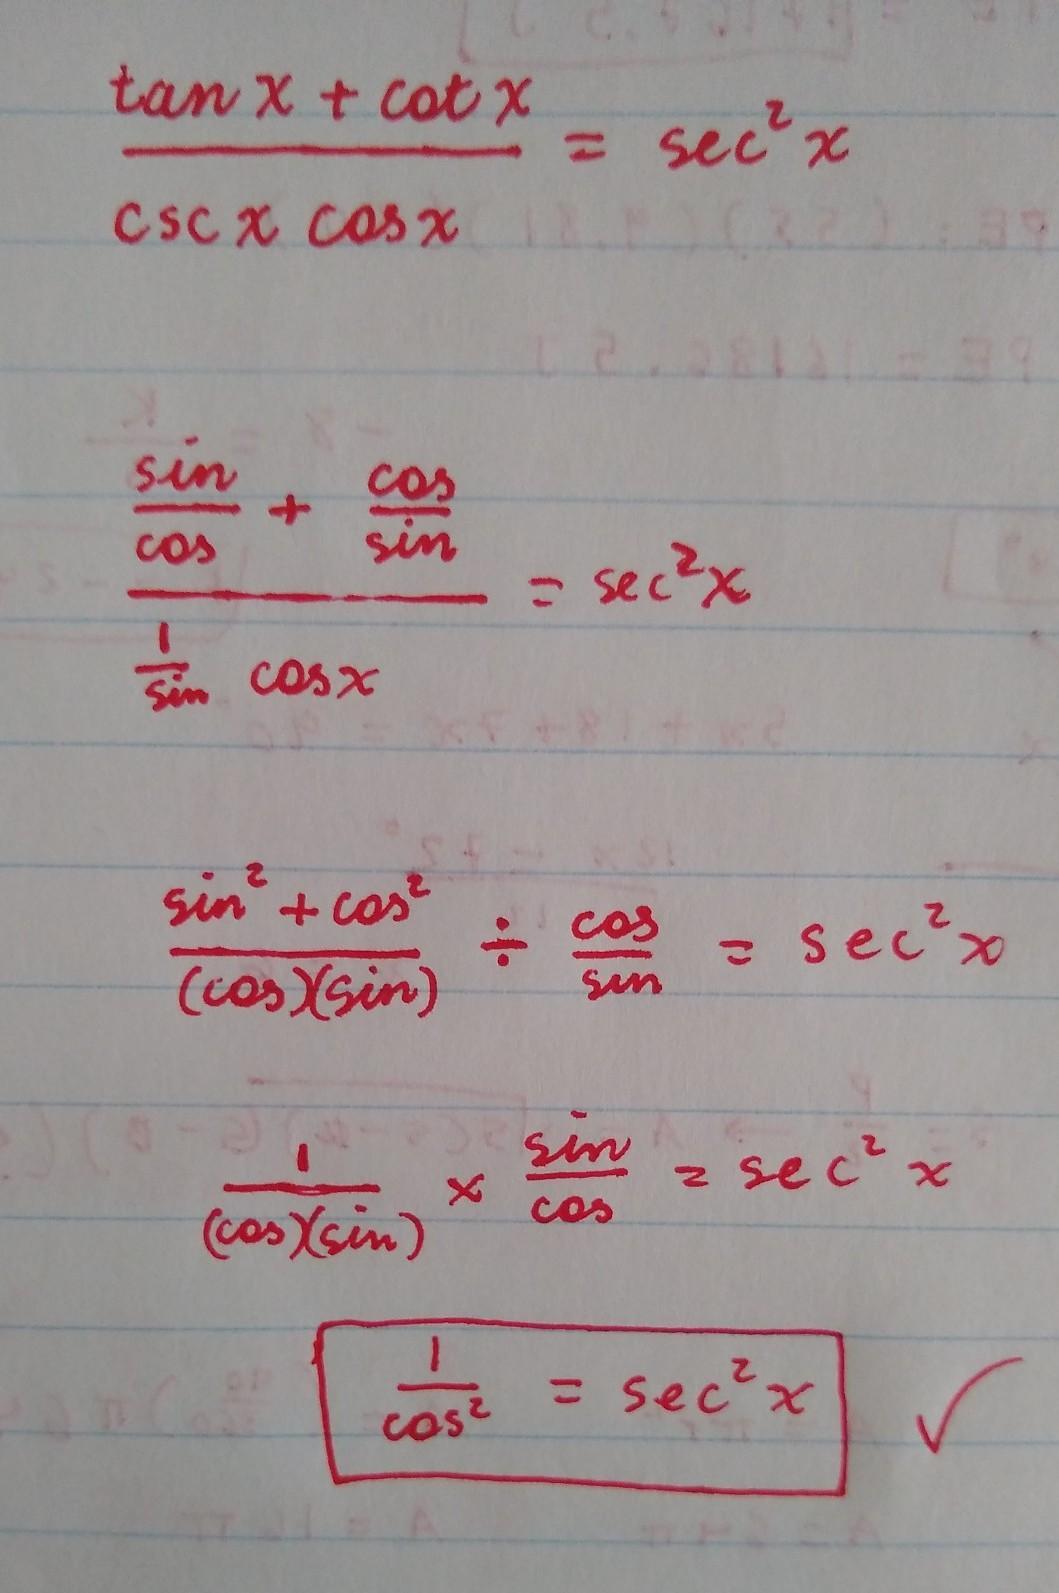 tan x + cot x
csc x cos x
= sec² x
sin/cos + cos/sin
1/sin cos x
= sec² x
sin² + cos²
(cos)(sin)
÷ cos/sin = sec² x
1/(cos)(sin) × sin/cos = sec² x
1/cos² = sec² x ✓